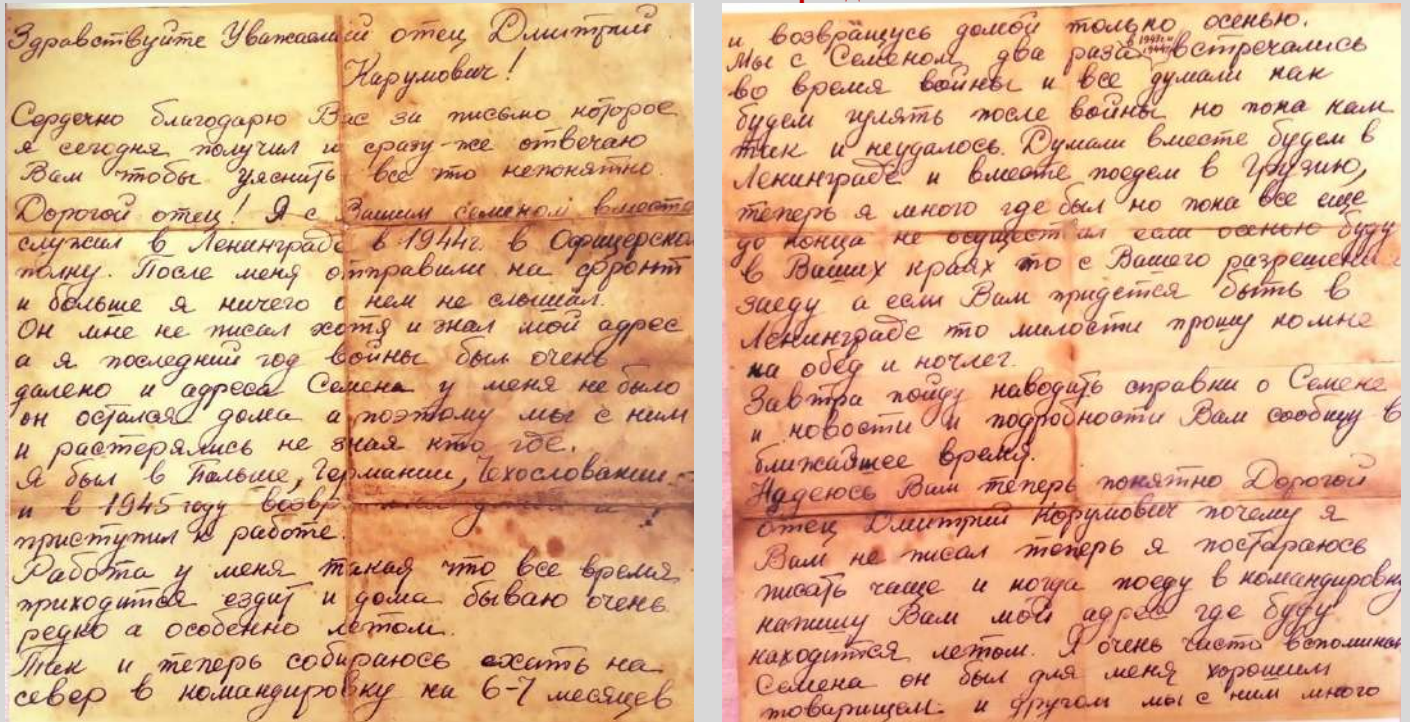 Здравствуйте Уважаемый отец Дмитрий
Карумович!
Сердечно благодарю Вас за письмо которое
я сегодня получил и сразу-же отвечаю
Вам чтобы уяснить все что непонятно.
Дорогой отец! Я с Вашим семеном вместе
служил в Ленинграде в 1944г. в Офицерско
полку. После меня отправили на фронт
и больше я ничего о нем не слышал.
Он мне не писал хотя и знал мой адрес
а я последний год войны был очень
далеко и адреса Семена у меня не было
он остался дома а поэтому мы с ним
и растерялись не зная кто где.
Я был в Польше, Германии, Чехословакии
и в 1945 году и
приступил к работе.
Работа у меня такая что все время
приходится ездит и дома бываю очень
редко а особенно летом.
Так и теперь собираюсь ехать на
север в командировку на 6-7 месяцев
и возвращусь домой только осенью.
Мы с Семеном два раза в 1943г и 1944г встречались
во время войны и все думали как
будем гулять после войны но пока нам
так и неудалось. Думали вместе будем в
Ленинграде и вместе поедем в Грузию,
теперь я много где был но пока все еще
до конца не осуществил если осенью буду
в Ваших краях то с Вашего разрешени
заеду а если Вам придется быть в
Ленинграде то милости прошу ко мне
на обед и ночлег.
Завтра пойду наводить справки о Семене
и новости и подробности Вам сообщу в
ближайшее время.
Надеюсь Вам теперь понятно Дорогой
отец Дмитрий Корумович почему я
Вам не писал теперь я постараюсь
писать чаще и когда поеду в командировку
напишу Вам мой адрес где буду
находится летом. Я очень часто вспоминаю
Семена он был для меня хорошим
товарищем и другом мы с ним много